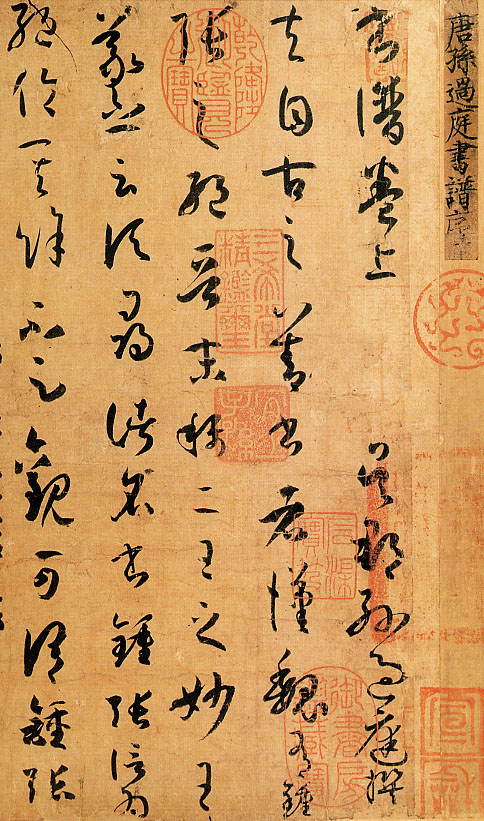 唐孫過庭書譜序
書譜卷上　吳郡孫過庭撰
夫自古之善書者漢魏有鍾
張之絕晉末稱二王之妙王
羲之云頃尋諸名書鍾張信為
絕倫其餘不足觀可謂鍾張
乾隆御覽之寶
三希堂精鑑璽
宜子孫
石渠寶笈
御書房鑑藏寶
宣和